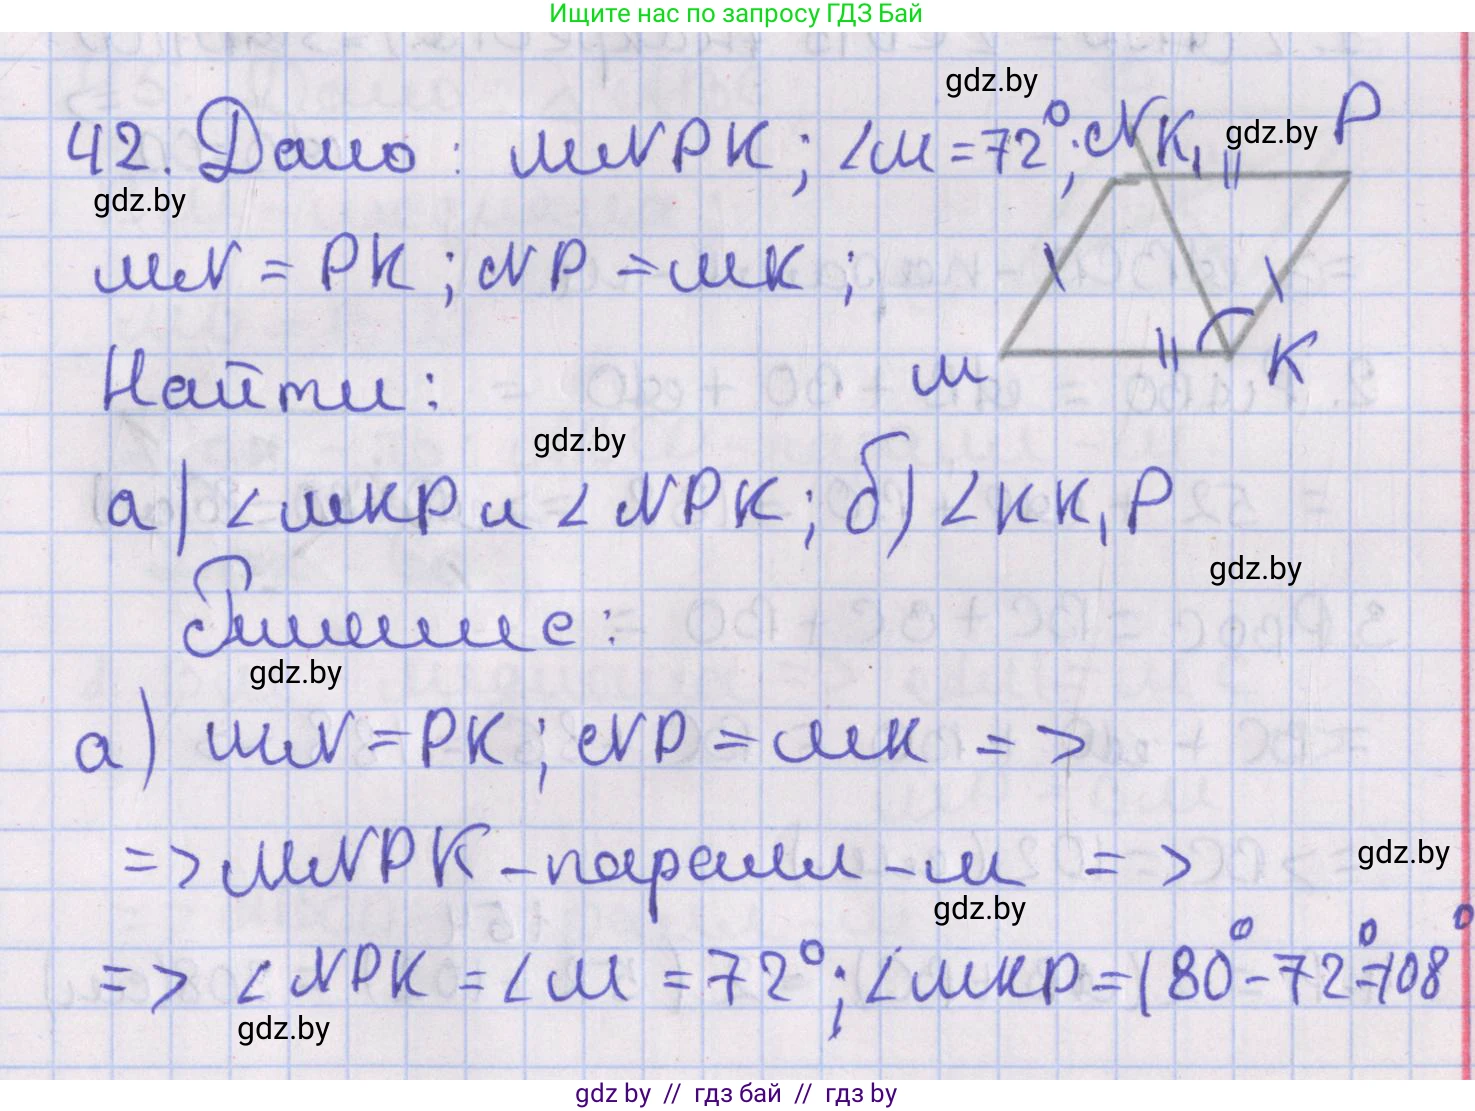 Ищите нас по запросу ГДЗ Бай
gdz.by
42. Дано: MNPK; ∠M=72°; N K₁ gdz.by P
gdz.by
MN = PK; NP = MK;
M K
Найти:
gdz.by
а) ∠MKP и ∠NPK; б) ∠KK₁P
gdz.by
Решение:
gdz.by
а) MN = PK; NP = MK =>
=> MNPK - паралл-м =>
gdz.by
gdz.by
=> ∠NPK = ∠M = 72°; ∠MKP = 180° - 72° = 108°
gdz.by
gdz by // гдз бай // гдз by